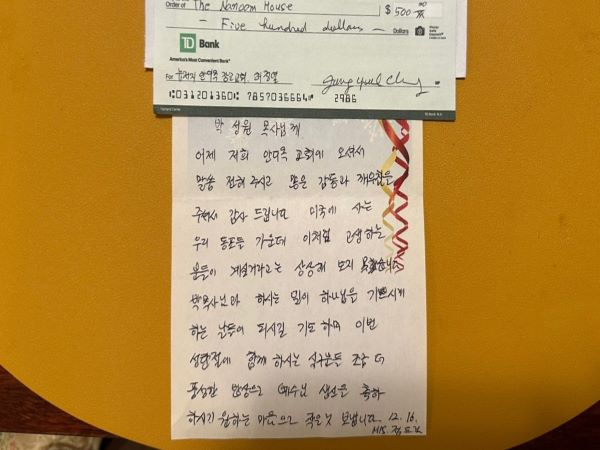 Order of The Nanoom House $ 500 00/xx
Five hundred dollars Dollars
TD Bank
America's Most Convenient Bank®
For 뉴저지 안디옥 장로교회
⑆031201360⑆ 7857036664⑈ 2986
박 성원 목사님께
어제 저희 안디옥 교회에 오셔서
말씀 전해 주시고 많은 감동과 깨우침을
주셔서 감사 드립니다 미국에 사는
우리 동포들 가운데 이처럼 고생하는
분들이 계실거라고는 상상해 보지 못했습니다
박목사님과 하시는 일이 하나님을 기쁘시게
하는 날들이 되시길 기도 하며 이번
성탄절에 함께 하시는 식구분들 조금 더
풍성한 밥상으로 예수님 생신을 축하
하시기 원하는 마음으로 작은것 보냅니다. 12.16.